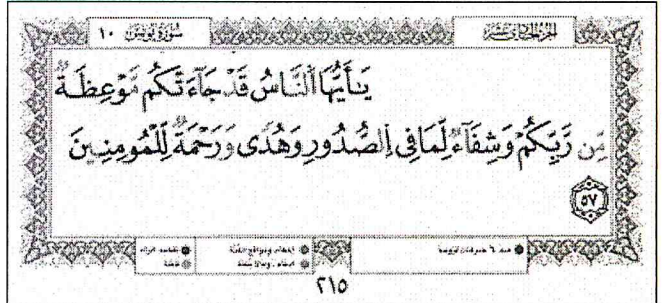 الجزء الحادي عشر
سورة يونس ١٠
يَـٰٓأَيُّهَا ٱلنَّاسُ قَدْ جَآءَتْكُم مَّوْعِظَةٌ
مِّن رَّبِّكُمْ وَشِفَآءٌ لِّمَا فِى ٱلصُّدُورِ وَهُدًى وَرَحْمَةٌ لِّلْمُؤْمِنِينَ
٥٧
قلقلة
٢١٥